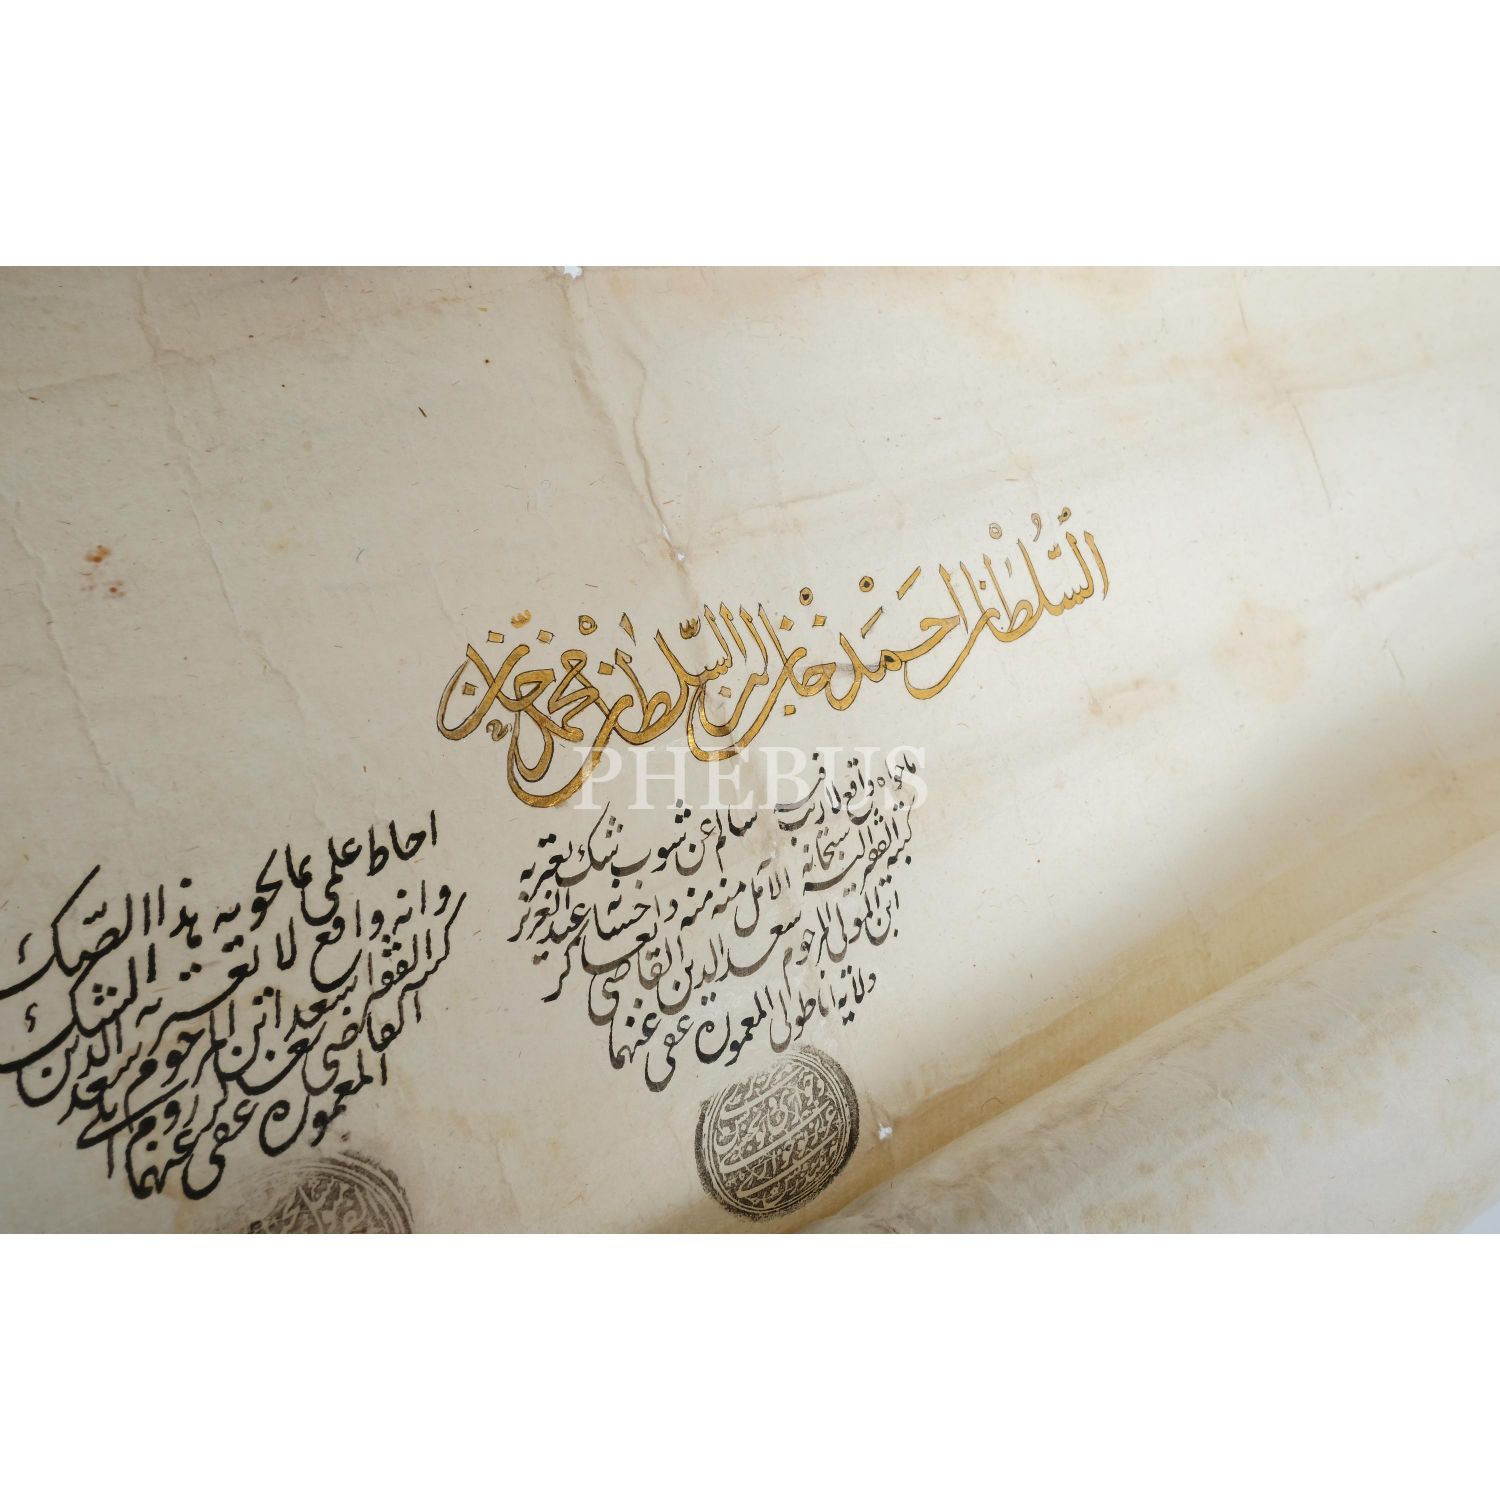 السُّلْطان احمَد خان ابن السّلطان محمد خان
PHEBUS
ما حواه واقع لا ريب فيه
سالم عن شوب شك يعتريه
كتبه الفقير اليه سبحانه
الآمل منه منه واحسانه عبد العزيز
ابن المولى المرحوم سعد الدين القاضى بعساكر
ولاية اناطولى المعمورة عفى عنهما
احاط علمى بما يحويه هذا الصّك
وانه واقع لا يعتريه الشك
كتبه الفقير اسعد ابن المرحوم سعد الدين
القاضى بعساكر روم ايلى
المعمورة عفى عنهما